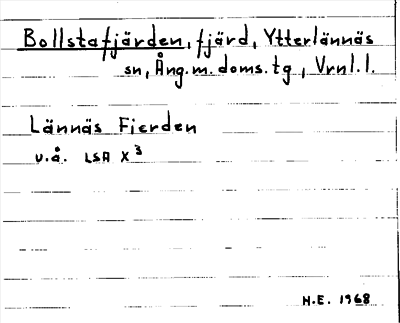 Bollstafjärden, fjärd, Ytterlännäs
sn, Ång. m. doms. tg, Vrnl. l.
Lännäs Fierden
u.å. LSA X³
H.E. 1968